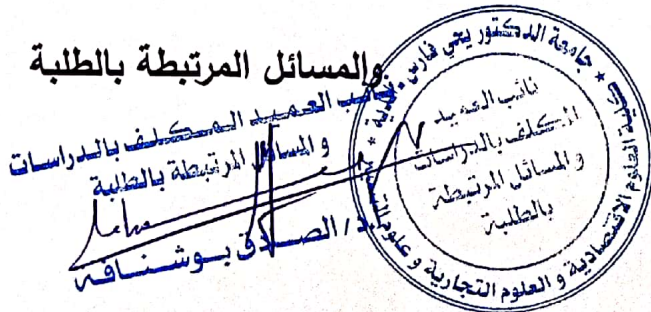 والمسائل المرتبطة بالطلبة
نائب العميد المكلف بالدراسات
و المسائل المرتبطة بالطلبة
أ.د / الصادق بوشنافه
جامعة الدكتور يحي فارس - المدية
العلوم الاقتصادية و العلوم التجارية و علوم
نائب العميد
المكلف بالدراسات
و المسائل المرتبطة
بالطلبة